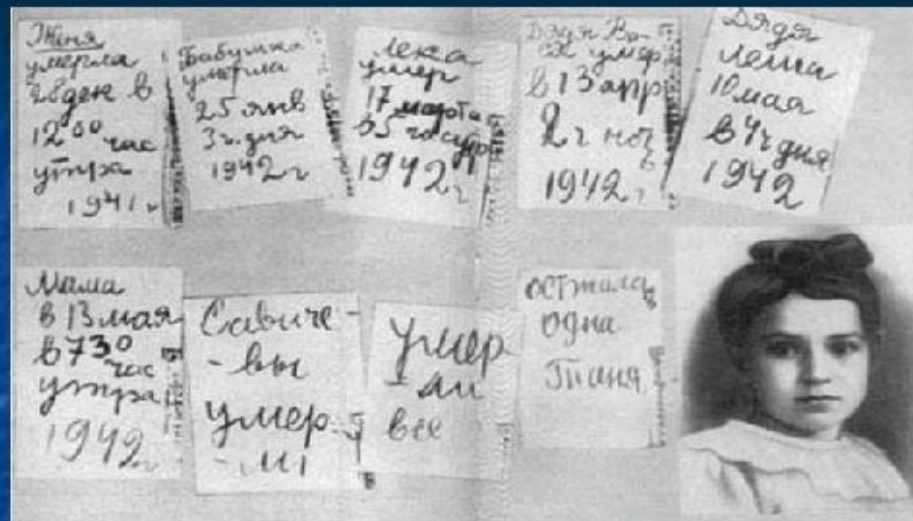 Женя
умерла
28 дек в
12⁰⁰ час
утра
1941 г
Бабушка
умерла
25 янв
3 ч. дня
1942 г
Лека
умер
17 марта
в 5 час утр
1942 г
Дядя Ва-
ся умер
в 13 апр
2 ч ноч
1942 г
Дядя
Леша
10 мая
в 4 ч дня
1942
Мама
в 13 мая
в 7³⁰
час
утра
1942 г
Савиче-
-вы
умер-
-ли
умер
-ли
все
осталась
одна
Таня